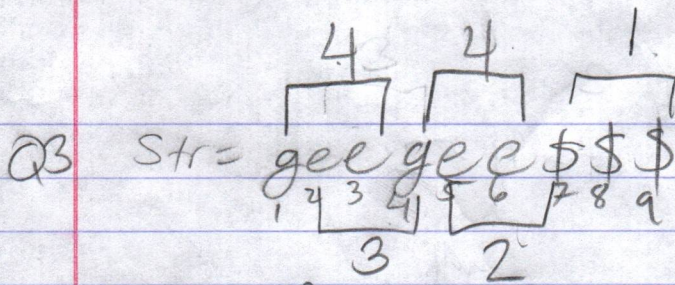 4 4 1
Q3 Str= geegee$$$
1 2 3 4 5 6 7 8 9
3 2